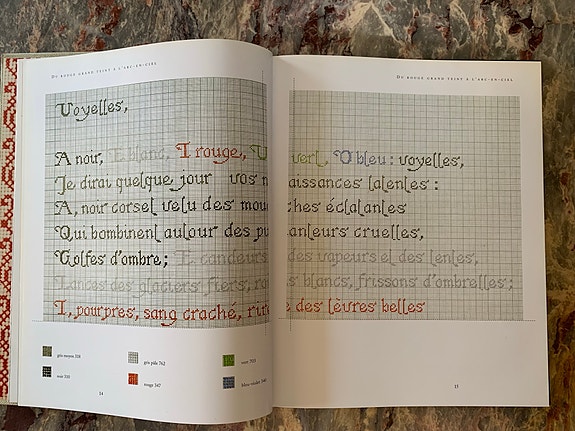 DU ROUGE GRAND TEINT À L'ARC-EN-CIEL
DU ROUGE GRAND TEINT À L'ARC-EN-CIEL
Voyelles,
A noir, E blanc, I rouge, U vert, O bleu : voyelles,
Je dirai quelque jour vos naissances latentes :
A, noir corset velu des mouches éclatantes
Qui bombinent autour des puanteurs cruelles,
Golfes d'ombre; E candeurs des vapeurs et des tentes,
Lances des glaciers fiers, rois blancs, frissons d'ombrelles;
I, pourpres, sang craché, rire des lèvres belles
gris moyen 318
gris pâle 762
vert
noir 310
rouge 347
bleu violet
14
15